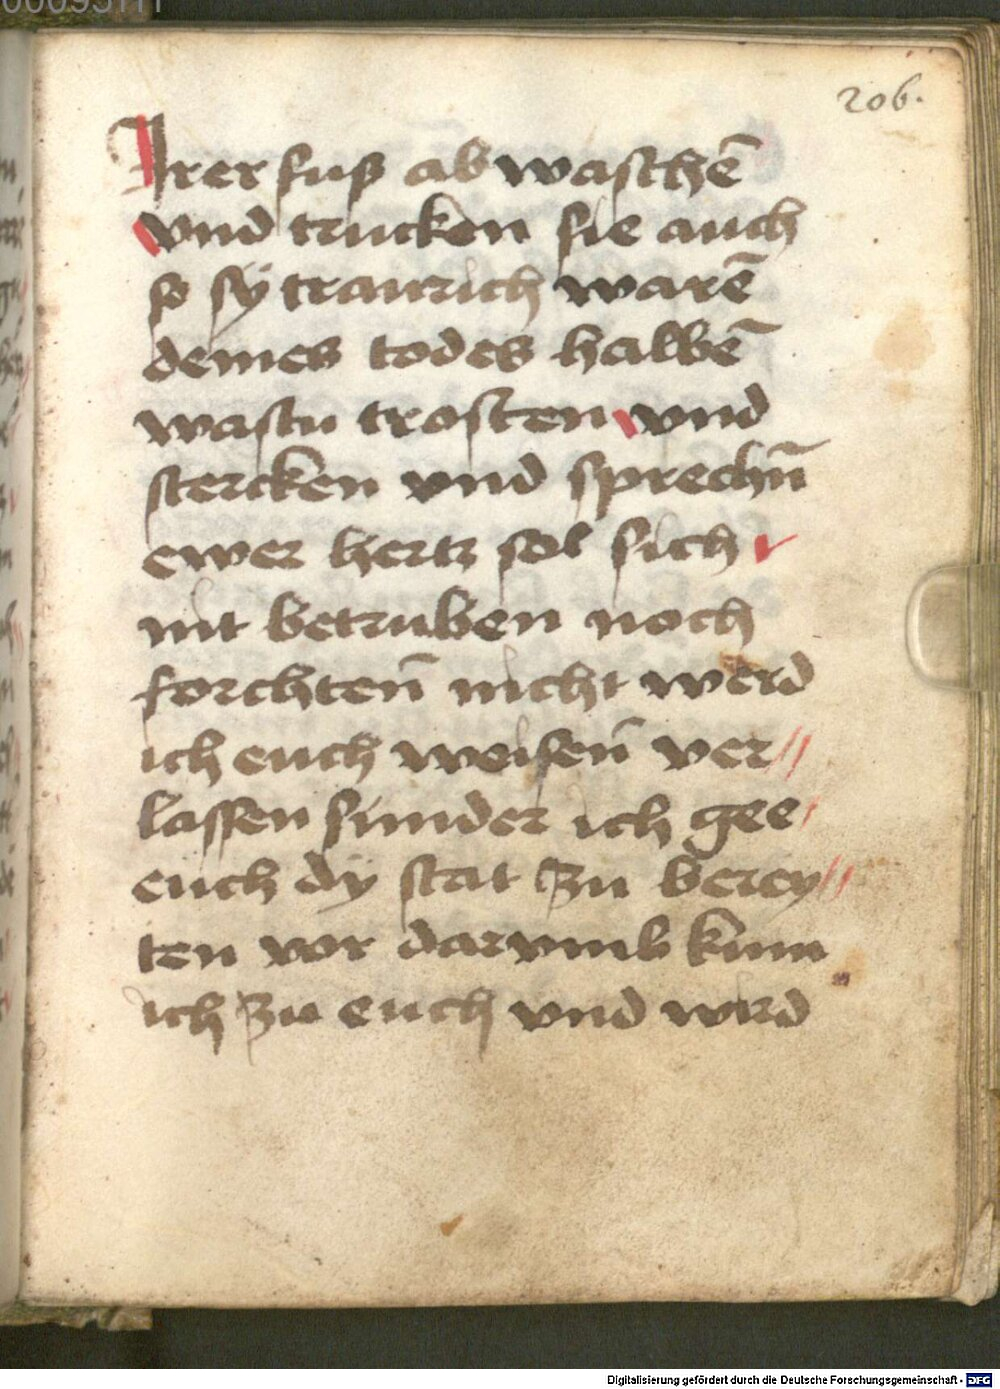 206.
Irer fuß ab waschē
vnd trucken sie auch
so sÿ traurich warē
deines todes halbē
wastu trosten vnd
stercken vnd sprechn̄
ewer hertz sol sich
nit betruben noch
forchten̄ nicht werd
ich euch weisen̄ ver//
lassen sunder ich gee
euch dÿ stat zu berey//
ten vor darvmb kum
ich zu euch vnd wird
Digitalisierung gefördert durch die Deutsche Forschungsgemeinschaft - DFG